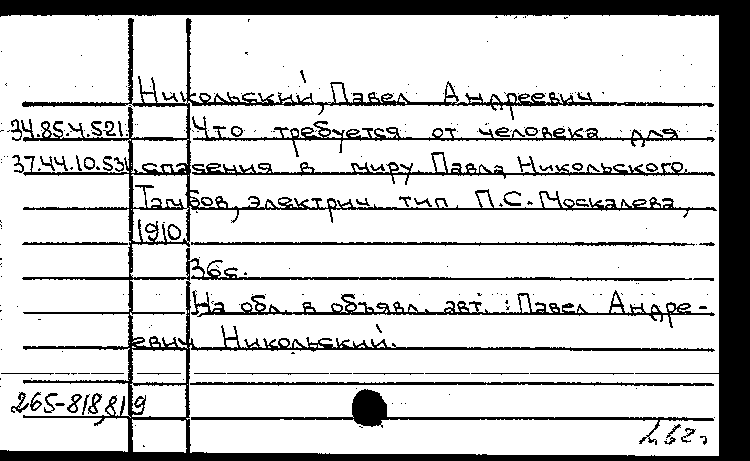 Никольский, Павел Андреевич
34.85.4.521. Что требуется от человека для
37.44.10.531. спасения в миру Павла Никольского.
Тамбов, электрич. тип. П.С. Москалева,
1910.
36с.
На обл. в объявл. авт.: Павел Андре-
евич Никольский.
265-818,819